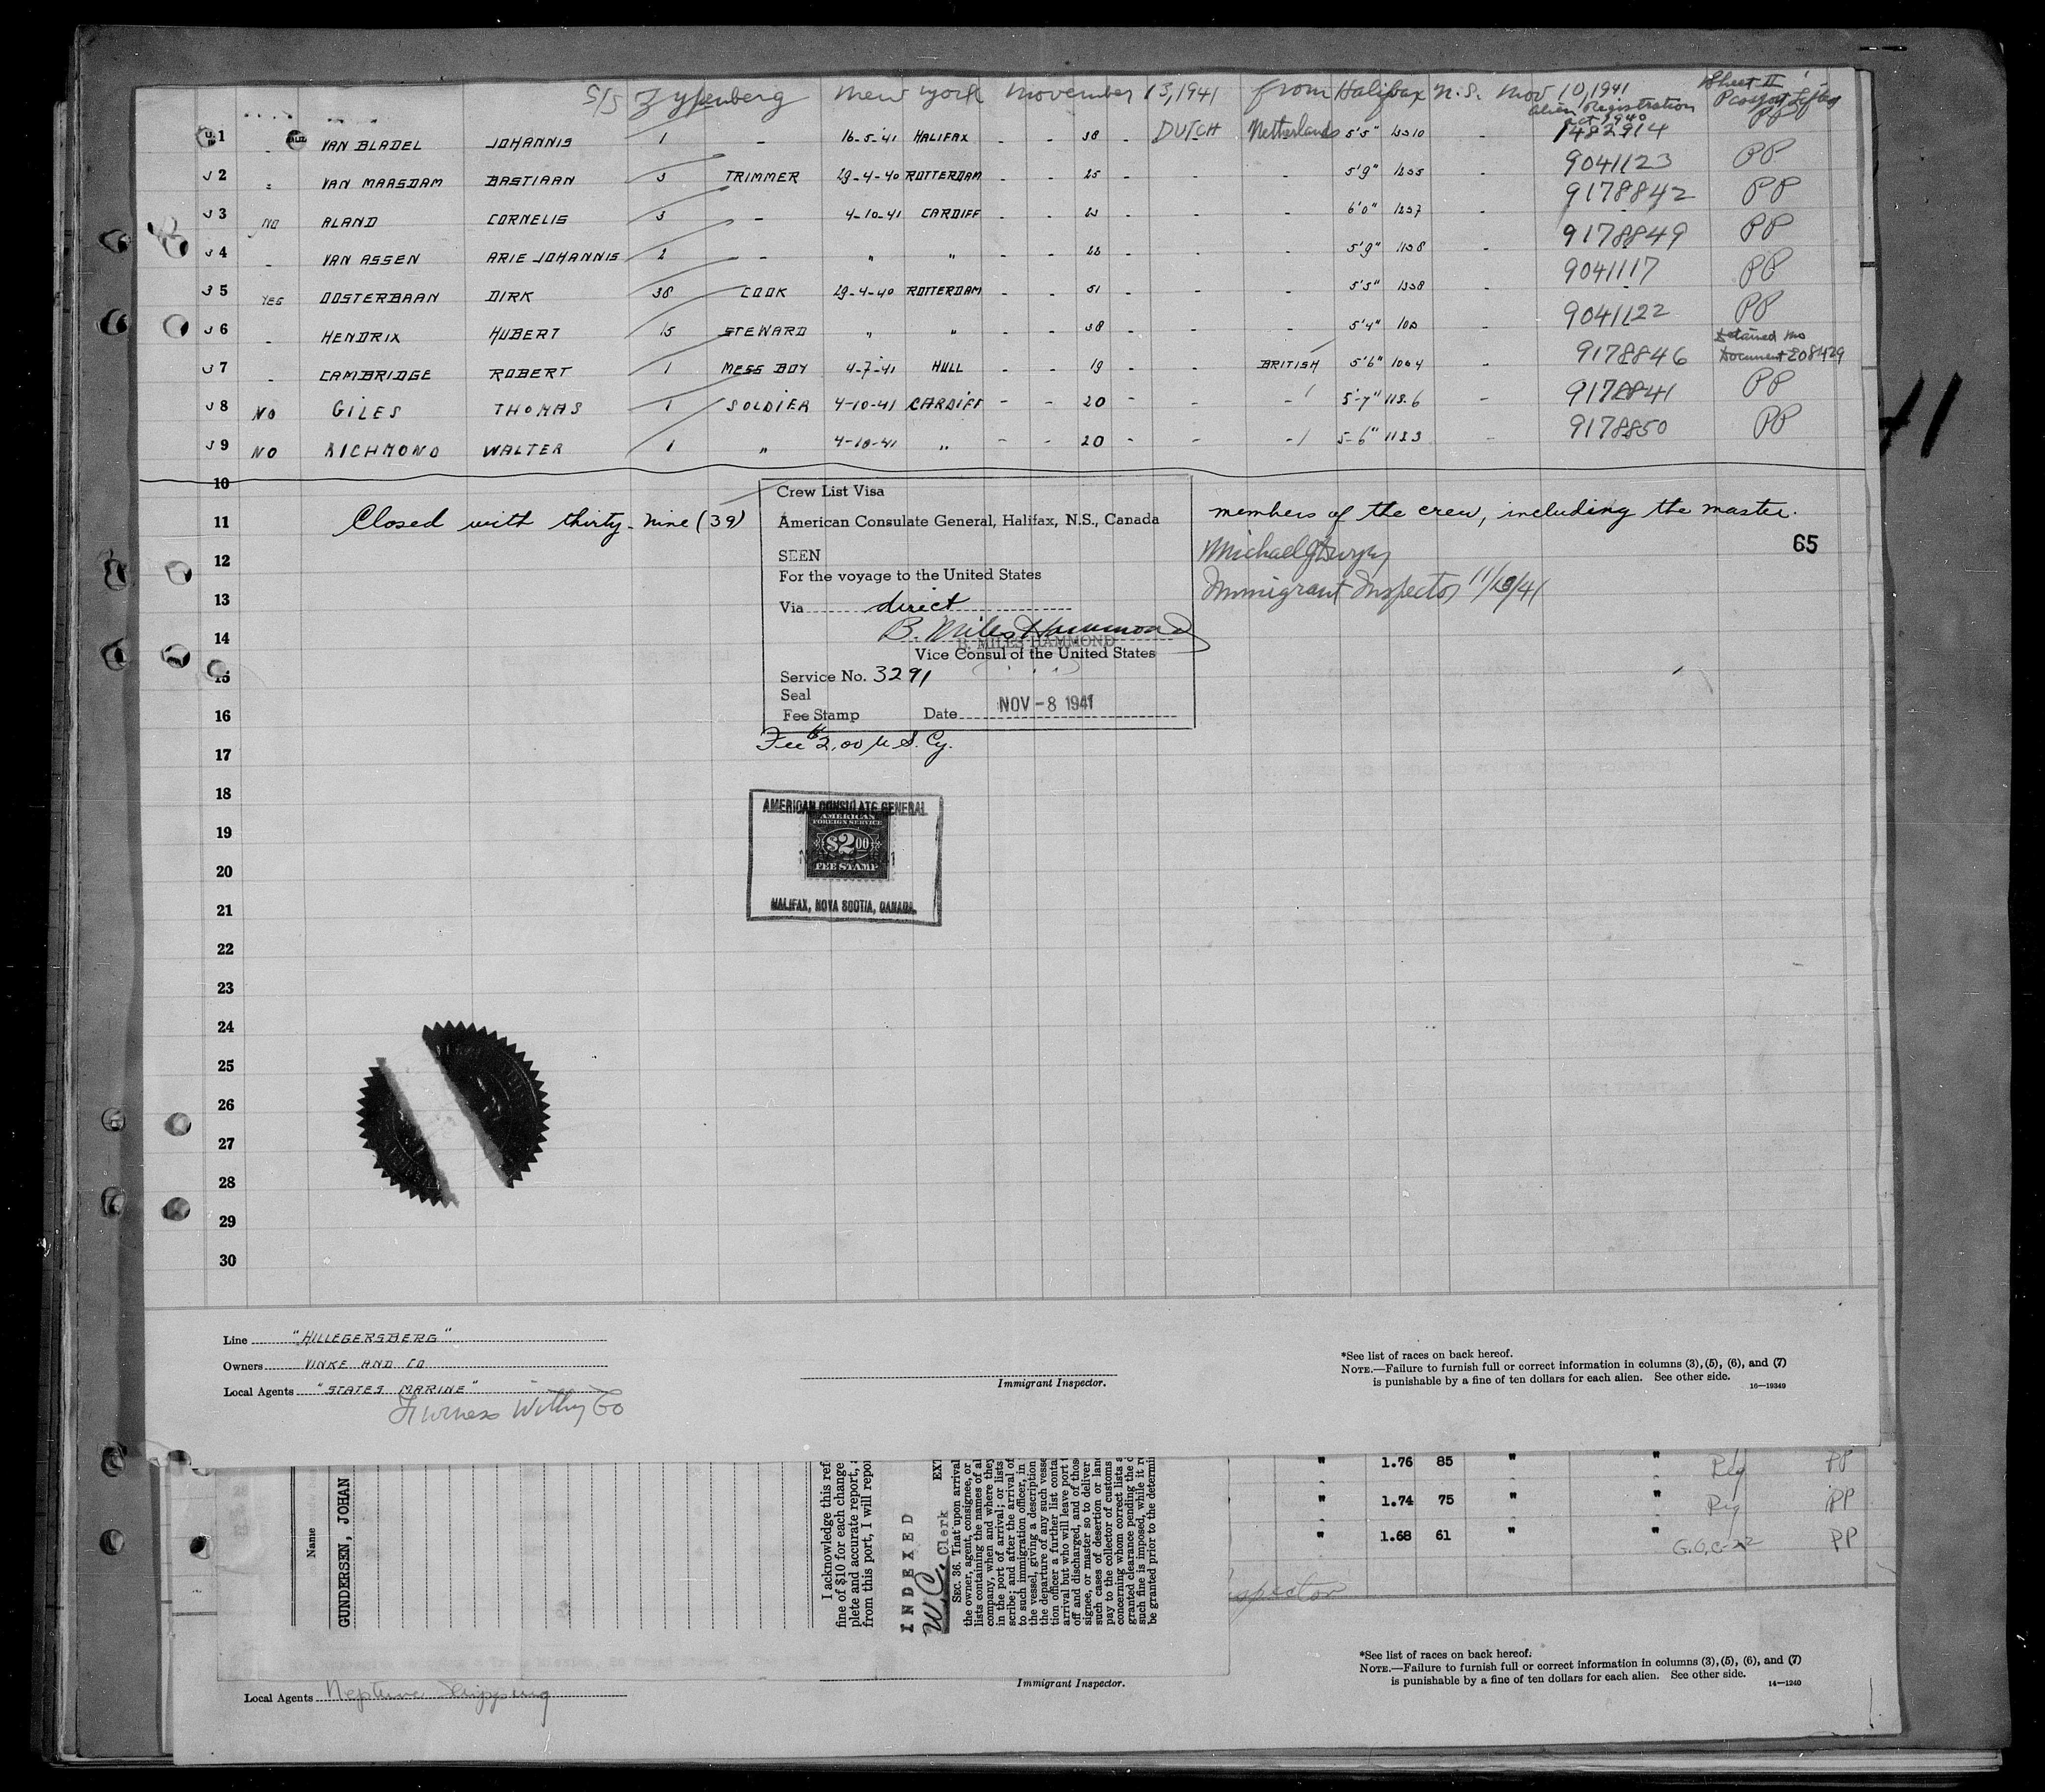 S/S Zypenberg New York November 13, 1941 from Halifax N.S. Nov 10, 1941 Sheet II
Alien Registration Act 1940
1 VAN BLADEL JOHANNIS 1 - 16-5-41 HALIFAX - - 38 - DUTCH Netherlands 5'5" - 1482914 PP
2 VAN MAASDAM BASTIAAN 3 TRIMMER 29-4-40 ROTTERDAM - - 25 - - - 5'9" - 9041123 PP
3 NO ALAND CORNELIS 3 - 4-10-41 CARDIFF - - 23 - - - 6'0" - 9178842 PP
4 - VAN ASSEN ARIE JOHANNIS 2 - " " - - - - - 5'9" - 9178849 PP
5 YES OOSTERBAAN DIRK 38 COOK 29-4-40 ROTTERDAM - - 51 - - - 5'5" - 9041117 PP
6 - HENDRIX HUBERT 15 STEWARD " " - - 38 - - - 5'4" - 9041122 PP
7 - CAMBRIDGE ROBERT 1 MESS BOY 4-7-41 HULL - - 19 - - BRITISH 5'6" - 9178846 Detained no Document 208429
8 NO GILES THOMAS 1 SOLDIER 4-10-41 CARDIFF - - 20 - - - 5-7" - 9178841 PP
9 NO RICHMOND WALTER 1 " 4-10-41 " - - 20 - - - 5-6" - 9178850 PP
41
10
11 Closed with thirty-nine (39) members of the crew, including the master.
Crew List Visa
American Consulate General, Halifax, N.S., Canada
SEEN
For the voyage to the United States
Via direct
B. Miles Hammond
B. MILES HAMMOND
Vice Consul of the United States
Service No. 3291
Seal
Fee Stamp Date NOV -8 1941
Fee $2.00 U.S. Cy.
Immigrant Inspector 11/13/41
65
12
13
14
15
16
17
18
19
20
21
22
23
24
25
26
27
28
29
30
AMERICAN CONSULATE GENERAL
AMERICAN
FOREIGN SERVICE
$2.00
FEE STAMP
HALIFAX, NOVA SCOTIA, CANADA.
Line "HILLEGERSBERG"
Owners VINKE AND CO
Local Agents "STATES MARINE"
Furness Withy Co
Immigrant Inspector.
*See list of races on back hereof.
NOTE.—Failure to furnish full or correct information in columns (3), (5), (6), and (7)
is punishable by a fine of ten dollars for each alien. See other side.
16—19349
Name
GUNDERSEN, JOHAN
I acknowledge this ref
fine of $10 for each change
plete and accurate report,
from this port, I will repor
INDEXED
W.C. Clerk
EXT
SEC. 36. That upon arrival
the owner, agent, consignee, or
lists containing the names of al
company, when and where they
in the port of arrival; or lists
scribe; and after the arrival of
to such immigration officer, in
the vessel, giving a description
the departure of any such vesse
tion officer a further list conta
arrival but who will leave port
off and discharged, and of thos
signee, or master so to deliver
such cases of desertion or lan
pay to the collector of customs
concerning whom correct lists a
granted clearance pending the d
such fine is imposed, while it r
be granted prior to the determi
" 1.76 85 " " Reg PP
" 1.74 75 " " Reg PP
" 1.68 61 " " PP
spector
Local Agents Neptune Shipping
Immigrant Inspector.
*See list of races on back hereof.
NOTE.—Failure to furnish full or correct information in columns (3), (5), (6), and (7)
is punishable by a fine of ten dollars for each alien. See other side.
14—1240